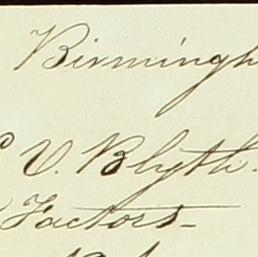 Birmingh
V. Blyth.
Factors